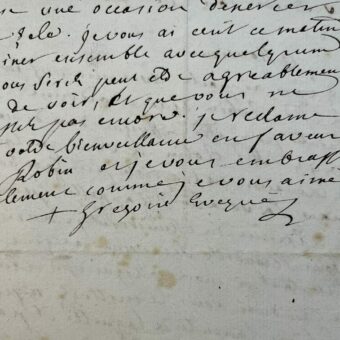 se une occasion d'exercer
zèle. je vous ai ecrit ce matin
iner ensemble avec quelqu'un
ous sera peut etre agreablement
de voir, et que vous ne
pas encore. je reclame
votre bienveillance en faveur
Robin et je vous embrasse
lement comme je vous aime
+ Gregoire Eveque